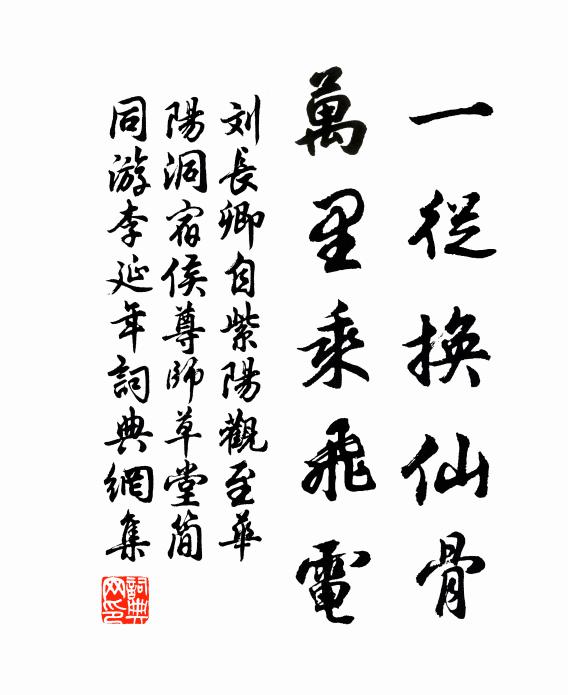 一從換仙骨
萬里乘飛電
刘長卿自紫陽觀至華
陽洞宿侯尊師草堂简
同游李延年詞典網集
詞典
网印